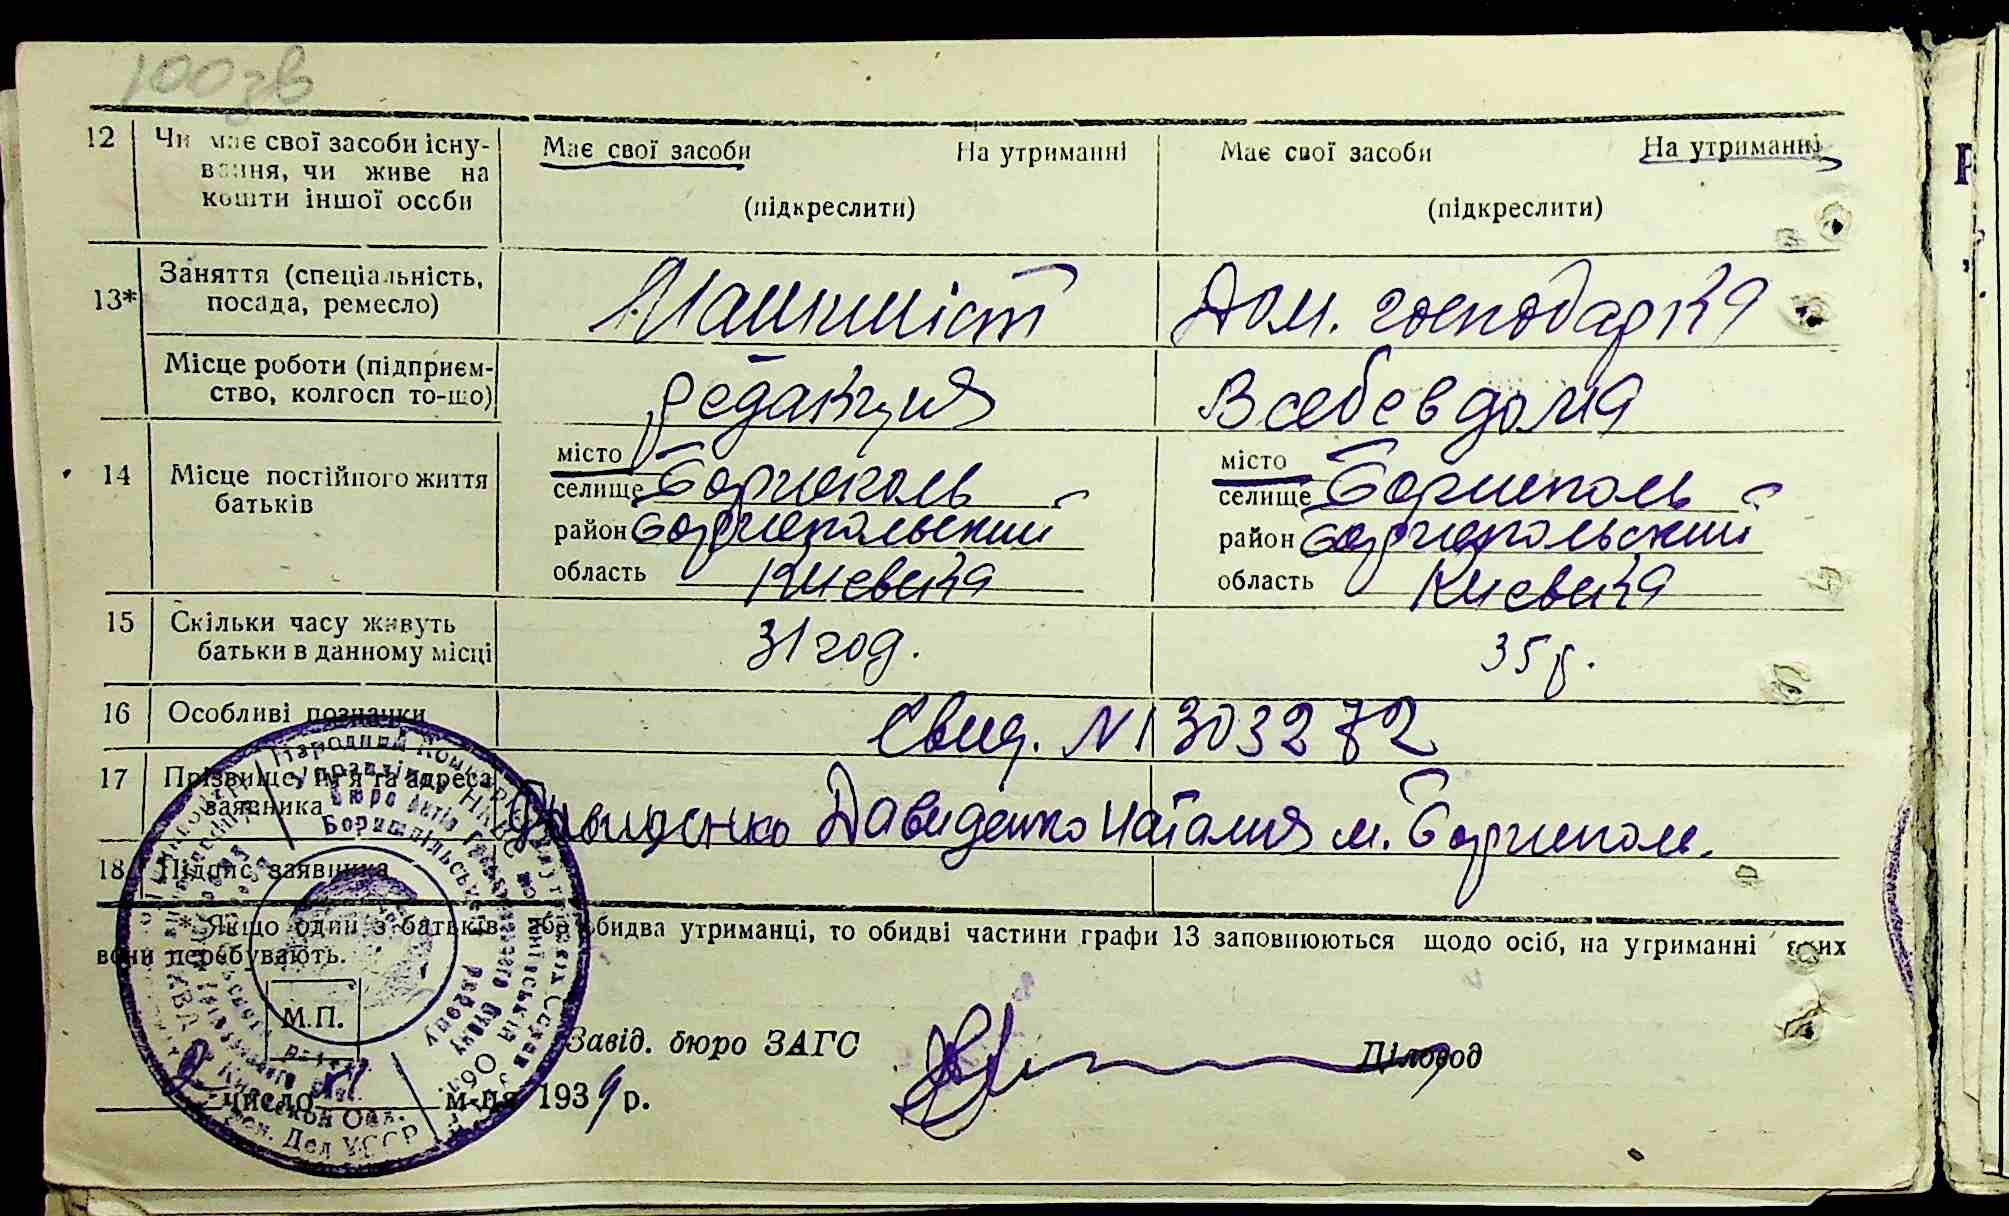 100зв
12 Чи має свої засоби існу- Має свої засоби На утриманні Має свої засоби На утриманні
вання, чи живе на
кошти іншої особи (підкреслити) (підкреслити)
13* Заняття (спеціальність, Машиніст Дом. господарка
посада, ремесло)
Місце роботи (підприєм- редакция В себе в дома
ство, колгосп то-що)
14 Місце постійного життя місто Бориспель місто Бориспель
батьків селище селище
район Бориспольский район Бориспольский
область Киевска область Киевска
15 Скільки часу живуть 31 год. 35 г.
батьки в данному місці
16 Особливі позначки Свид. № 303272
17 Прізвище, ім'я та адреса Давиденко Наталия м. Бориспол.
заявника
18 Підпис заявника
* Якщо один з батьків або обидва утриманці, то обидві частини графи 13 заповнюються щодо осіб, на утриманні яких
вони перебувають.
М.П.
Завід. бюро ЗАГС Діловод
число м-ця 1939 р.
Народний Комісаріат Внутрішніх Справ УРСР
управління НКВС Київській Обл.
Бюро актів громадянського стану
Бориспільського району
Киевской Обл.
Дел УССР